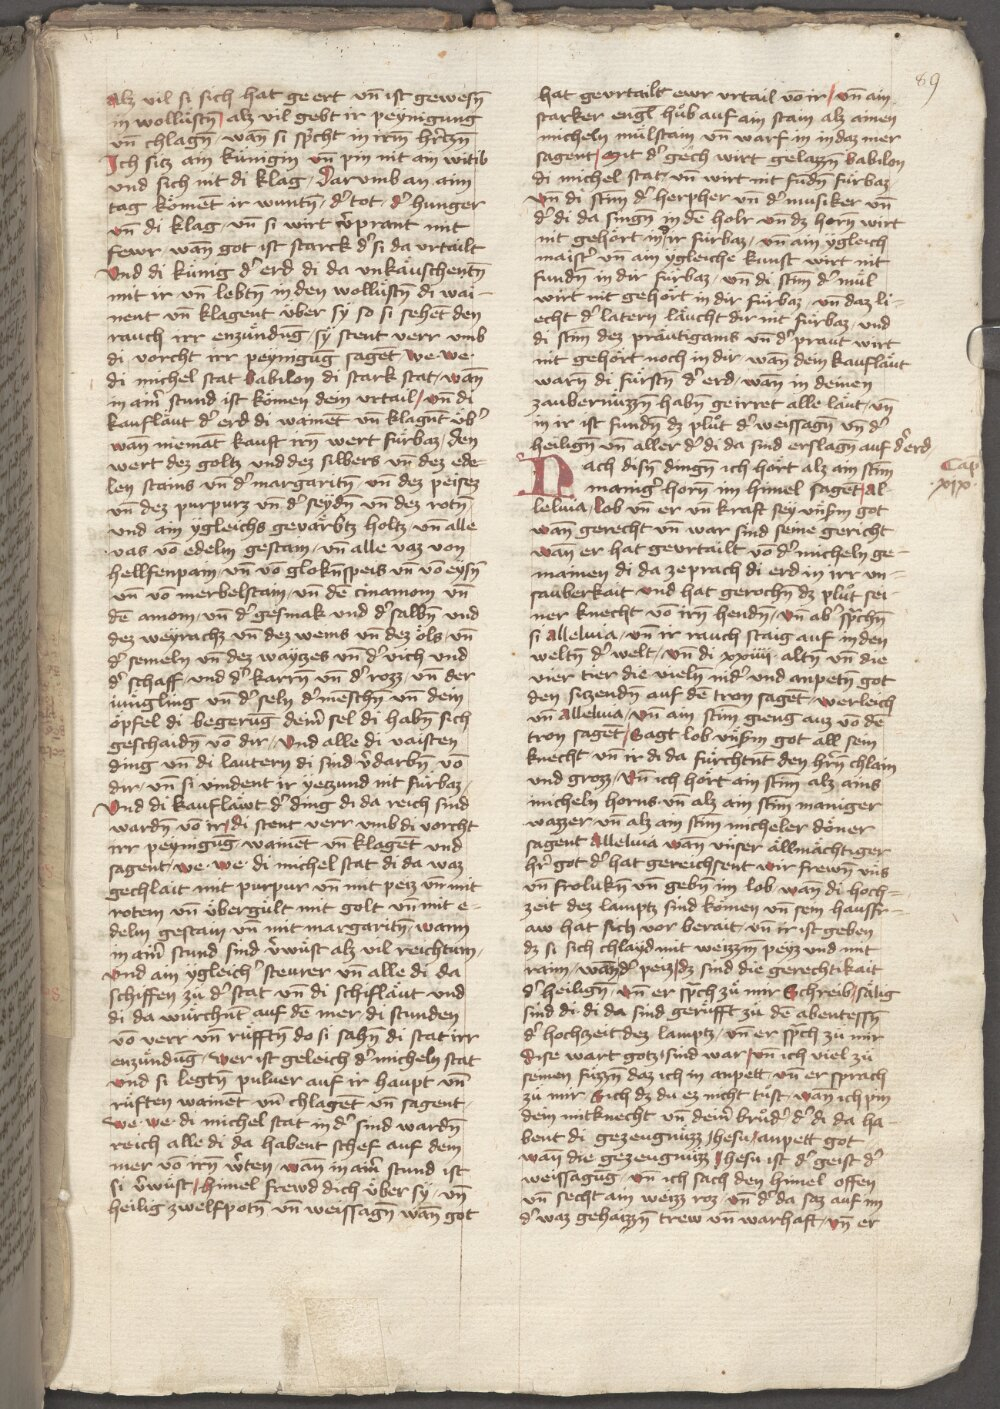 89
Alz vil si sich hat geert vn̄ ist gewesn̄
in wollüstn̄ / alz vil gebt ir peynigung
vn̄ chlagn̄ / wan̄ si spͥcht in irm hr̄czn̄
Ich sitz ain künigin vn̄ pin nit ain witib
vnd sich nit di klag / Darvmb an aim
tag kömēt ir wuntn̄ / dˀ tot / dˀ hunger
vn̄ di klag / vn̄ si wirt vˀprant mit
fewr / wan̄ got ist starck dˀ si da vrtailt
Vnd di künig dˀ erd di da vnkäuschentn̄
mit ir vn̄ lebtn̄ in den wollüstn̄ di wai-
nent vn̄ klagent über sy so si sehēt den
rauch irr enzündūg / sy stent verr vmb
di vorcht irr peynigūg sagēt We we
di michel stat Babilon di stark stat / wan̄
in ainˀ stund ist kömen dein vrtail / Vn̄ di
kaufläut dˀ erd di wainēt vn̄ klagnt übˀ
wan̄ niemāt kauft irn̄ wert fürbaz / Den
wert dez goltz vnd dez silbers vn̄ dez ede-
len stains vn̄ dˀ margaritn̄ vn̄ dez peisez
vn̄ dez purpurz vn̄ dˀ seydn̄ vn̄ dez rotn̄
vnd ain ygleichs gevärbtz holtz / vn̄ alle
vas vō edelm gestain / vn̄ alle vaz von
hellfenpain / vn̄ vō glokn̄speis vn̄ vō eysn̄
vn̄ vō merbelstain / vn̄ dē cinamom vn̄
dē amom / vn̄ dˀ gesmak vnd dˀ salbn̄ vnd
dez weyrachz vn̄ dez weins vn̄ dez öls / vn̄
dˀ semeln vn̄ dez waytzes vn̄ dˀ vich vnd
dˀ schaff / vnd dˀ karrn̄ vn̄ dˀ rozz / vn̄ der
jüngling vn̄ dˀ seln dˀ mēschn̄ vn̄ dein
öpfel di begerūg deinˀ sel di habn̄ sich
geschaidn̄ vō dir / Vnd alle di vaisten
ding vn̄ di lautern di sind vˀdarbn̄ vō
dir / vn̄ si vindent ir yetzund nit fürbaz /
Vnd di kaufläwt dˀ ding di da reich sind
wardn̄ vō ir / di stent verr vmb di vorcht
irr peynigūg / wainēt vn̄ klagēt vnd
sagent / we / we / di michel stat di da waz
gechlait mit purpur vn̄ mit peiz vn̄ mit
rotem vn̄ übergült mit golt vn̄ mit e-
delm gestain vn̄ mit margaritn̄ / wann
in ainˀ stund sind vˀwüst alz vil reichtum /
Vnd ain ygleichˀ steurer vn̄ alle di da
schiffen zü dˀ stat vn̄ di schifläut vnd
di da würchnt auf dē mer di stunden
vō verr vn̄ rüfftn̄ do si sahn̄ di stat irr
enzündūg / wer ist geleich dˀ micheln stat
Vnd si legtn̄ pulver auf ir haupt vn̄
rüften wainēt vn̄ chlagēt vn̄ sagent /
We / we / di michel stat in dˀ sind wardn̄
reich alle di da habent schef auf dem
mer vō irn̄ vˀten / wan in ainˀ stund ist
si vˀwüst / Himel frewd dich über sy / vn̄
heilig zwelfpotn̄ vn̄ weissagn̄ wan̄ got
hat gevrtailt ewr vrtail vō ir / Vn̄ ain
starker engl hub auf ain stain alz ainen
micheln mülstain vn̄ warf in in daz mer
sagent / Mit dˀ gech wirt gelazzn̄ babilon
di michel stat / vn̄ wirt nit fūdn̄ fürbaz
Vn̄ di stim̄ dˀ herpher vn̄ dˀ musiker vn̄
dˀ di da singn̄ in dē holr vn̄ dz horn̄ wirt
nit gehört in ir fürbaz / vn̄ ain ygleich
maistˀ vn̄ ain ygleiche kunst wirt nit
fundn̄ in dir fürbaz / vn̄ di stim̄ dˀ mül
wirt nit gehört in dir fürbaz / vn̄ daz li-
echt dˀ latern läucht dir nit fürbaz / vnd
di stim̄ dez präutigams vn̄ dˀ praut wirt
nit gehört noch in dir / wan̄ dein kaufläut
warn̄ di fürstn̄ dˀ erd / wan̄ in deinen
zaubernüzzn̄ habn̄ geirret alle läut / vn̄
in ir ist fundn̄ dz plůt dˀ weissagn̄ vn̄ dˀ
heilign̄ vn̄ aller dˀ di da sind erslagn̄ auf dˀ erd
Cap
xix
Nach disn̄ dingn̄ ich hört alz ain stim̄
manigˀ horn̄ im himel sagēt / Al-
leluia / lob vn̄ er vn̄ kraft sey vn̄sm̄ got
wan̄ gerecht vn̄ war sind seine gericht
wan̄ er hat gevrtailt vō dˀ micheln ge-
mainen di da zeprach di erd in irr vn-
sauberkait vnd hat gerochn̄ dz plůt sei-
ner knecht vō irn̄ hendn̄ / Vn̄ abˀ spͣchn̄
si alleluia / vn̄ ir rauch staig auf in den
weltn̄ dˀ welt / Vn̄ di xxiiii altn̄ vn̄ die
vier tier die vieln̄ nidˀ vnd anpetn̄ got
den sitzendn̄ auf dē tron sagēt / werleich
vn̄ Alleluia / Vn̄ ain stim̄ gieng auz vō dē
tron sagēt / Sagt lob vn̄sm̄ got all sein
knecht vn̄ ir di da fürchtnt den hrn̄ chlain
vnd groz / Vn̄ ich hört ain stim̄ alz ains
micheln horns vn̄ alz ain stim̄ maniger
wazzer vn̄ alz ain stim̄ micheler döner
sagent Alleluia wan vnser allmächtiger
hrˀ got dˀ hat gereichsent wir frewn̄ vns
vn̄ frolukn̄ vn̄ gebn̄ im lob / wan di hoch-
zeit dez lamptz sind kömen vn̄ sein hausfr-
aw hat sich vor berait / vn̄ ir ist geben
dz si sich chlayd mit weizzm peyz vnd mit
rainn / wan̄ dˀ peiz dz sind die gerechtikait
dˀ heilign̄ / Vn̄ er spͣch zü mir Schreib / sälig
sind di / di da sind gerüfft zü dē abentessn̄
dˀ hochzeit dez lamptz / vn̄ er spͣch zü mir
Dise wart gotz sind war / vn̄ ich viel zü
seinen füzzn̄ daz ich in anpett / vn̄ er sprach
zü mir / Sich dz du ez nicht tüst / wan̄ ich pin
dein mitknecht vn̄ deinˀ brůdˀ dˀ di da ha-
bent di gezeugnüzz Jhesu / anpett got
wan̄ die gezeugnüzz Jhesu ist dˀ geist dˀ
weissagūg / Vn̄ ich sach den himel offen
vn̄ secht ain weizz roz / vn̄ dˀ da saz auf im
dˀ waz gehaizzn̄ trew vn̄ warhaft / vn̄ er